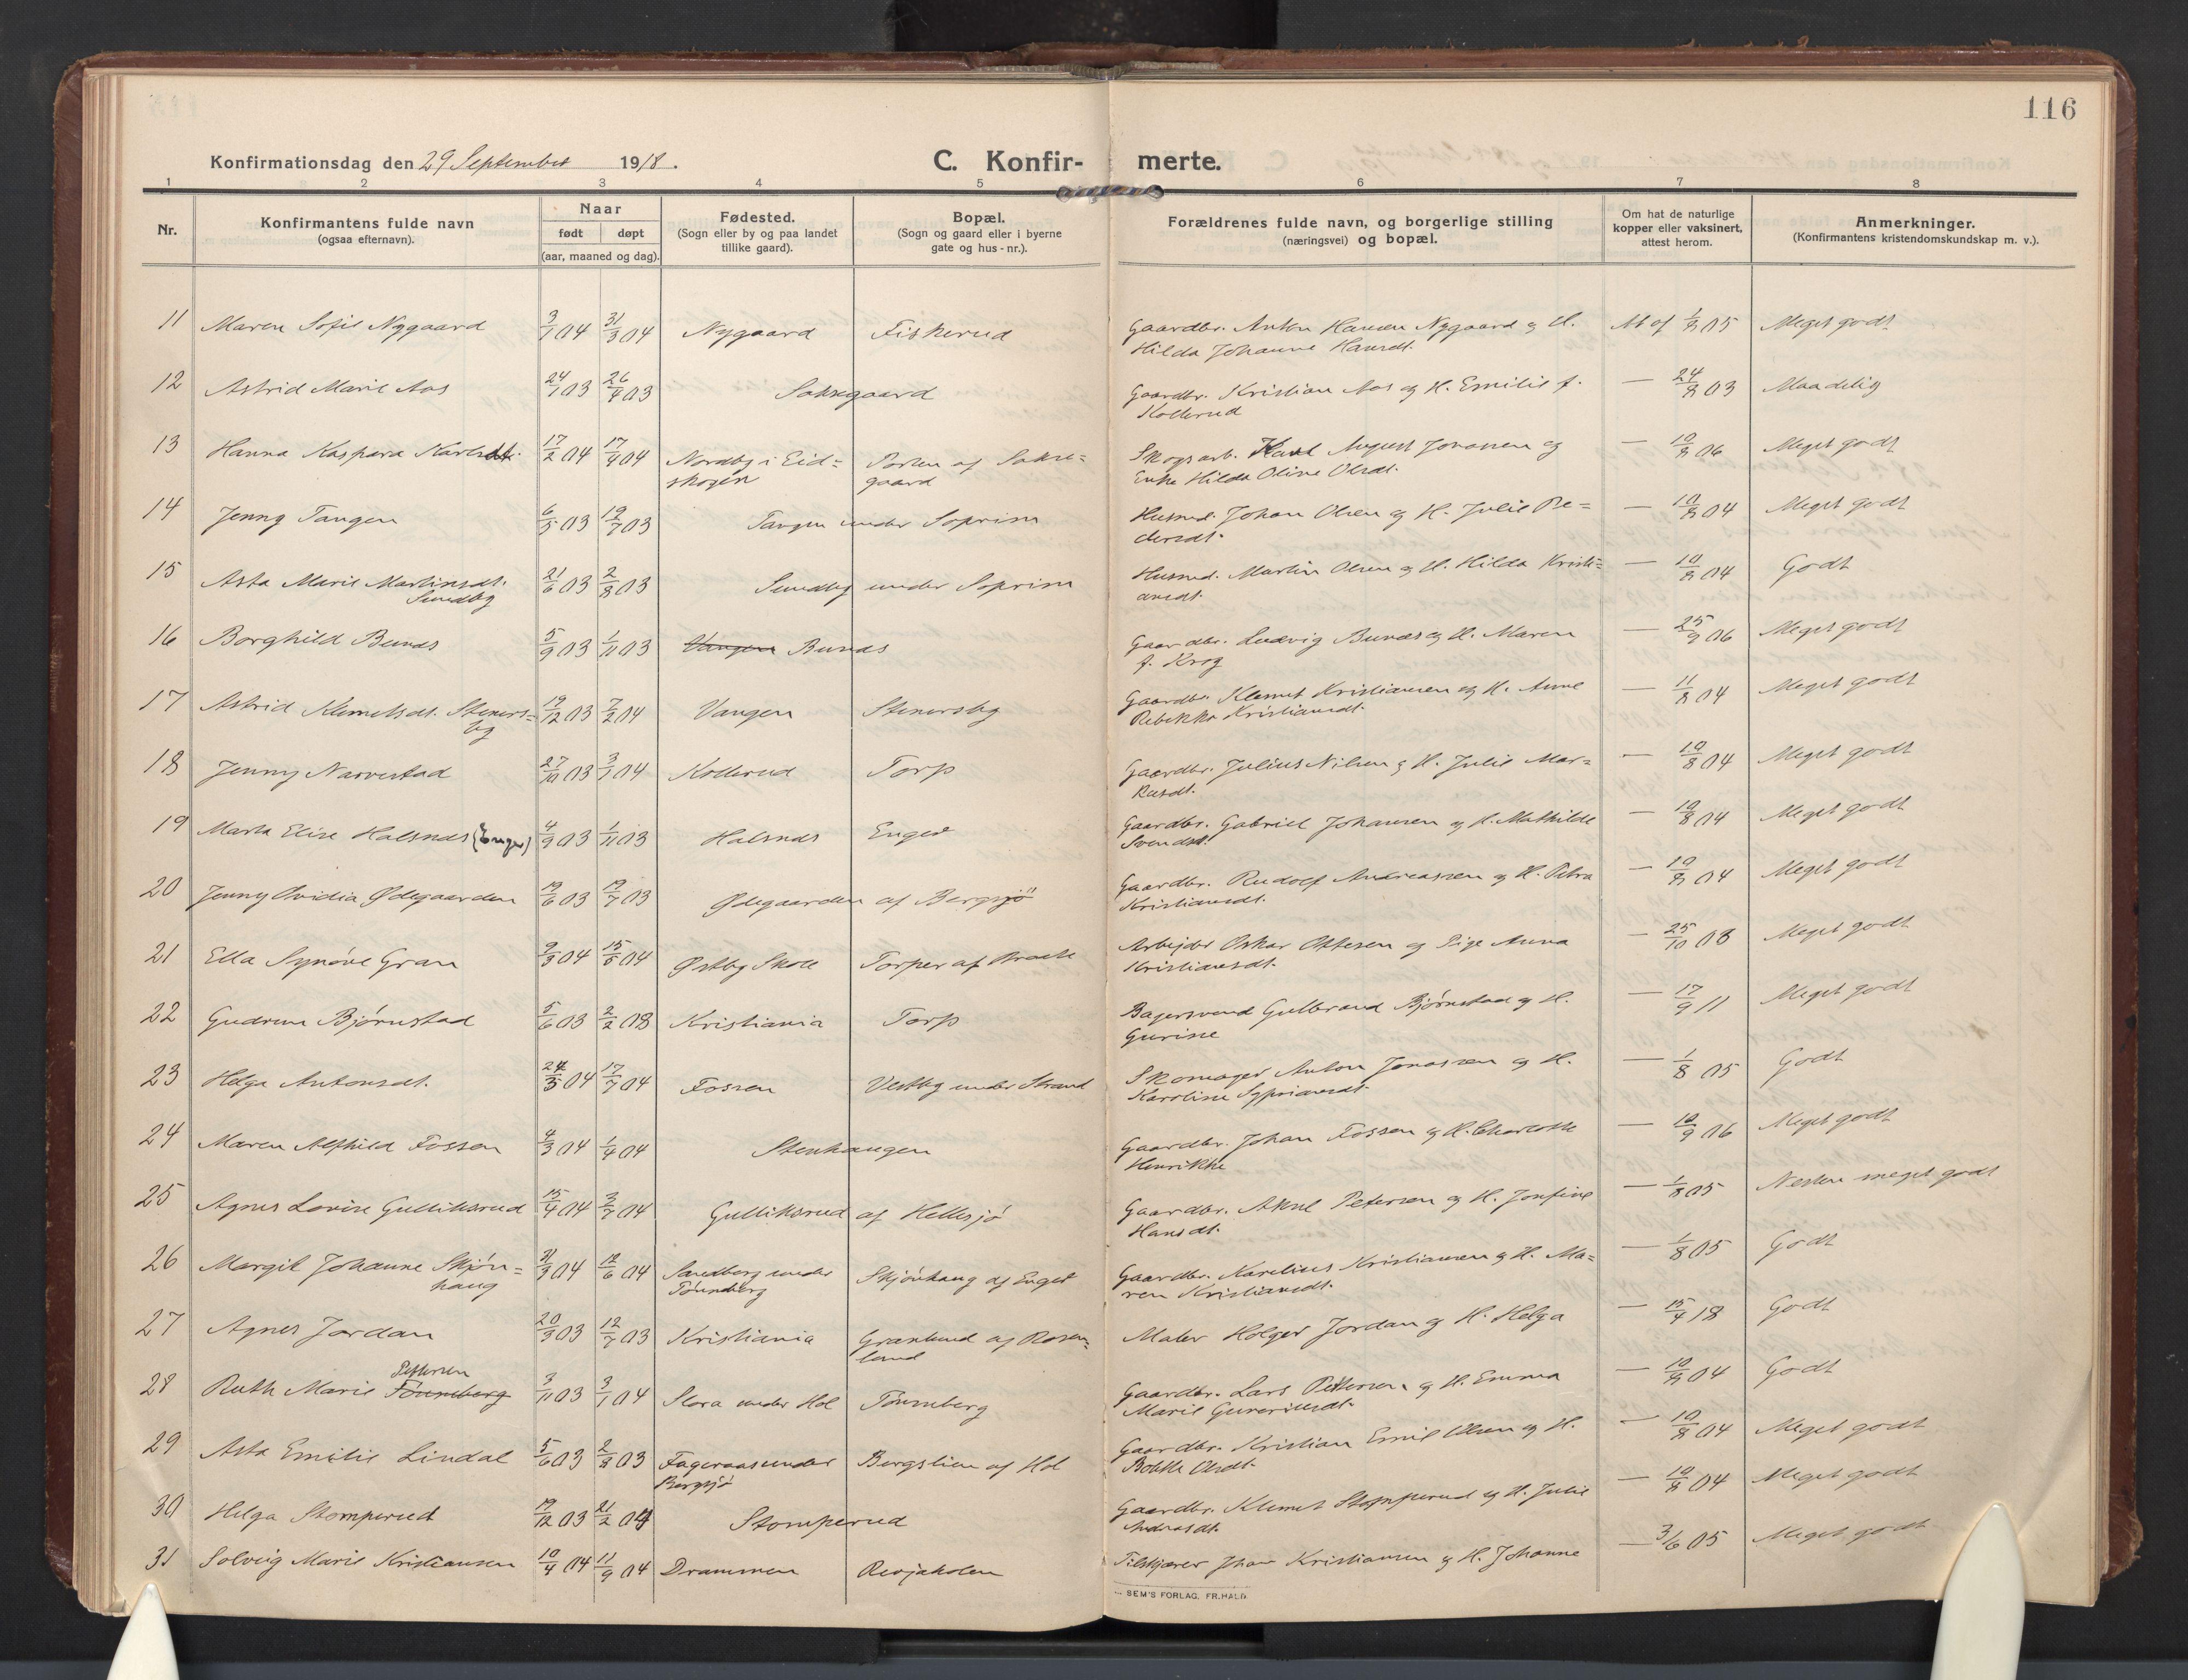 116
Konfirmationsdag den 29 September 1918.
C. Konfir- merte.
1 2 3 4 5 6 7 8
Nr.
Konfirmantens fulde navn
(ogsaa efternavn).
Naar
født døpt
(aar, maaned og dag).
Fødested.
(Sogn eller by og paa landet
tillike gaard).
Bopæl.
(Sogn og gaard eller i byerne
gate og hus - nr.).
Forældrenes fulde navn, og borgerlige stilling
(næringsvei) og bopæl.
Om hat de naturlige
kopper eller vaksinert,
attest herom.
Anmerkninger.
(Konfirmantens kristendomskundskap m. v.).
11 Maren Sofie Nygaard 3/1 04 31/3 04 Nygaard Fiskerud Gaardbr. Anton Hansen Nygaard og H. At af 1/8 05 Meget godt
Hilda Johanne Hansdt.
12 Astrid Marie Aas 24/1 03 26/4 03 Saksegaard Gaardbr. Kristian Aas og H. Emilie f. — 24/8 03 Maadelig
Kollerud
13 Hanna Kaspara Karlsdt. 17/2 04 17/4 04 Nordby i Eid= Porten af Sakse= Skogsarb. Karl August Jonassen og — 10/8 06 Meget godt
skogen gaard Enke Hilda Oline Olsdt.
14 Jenny Tangen 6/5 03 19/7 03 Tangen under Soprim Husmd. Johan Olsen og H. Julie Pe= — 10/8 04 Meget godt
dersdt.
15 Asta Marie Martinsdt. 21/6 03 2/8 03 Sundby under Soprim Husmd. Martin Olsen og H. Hilda Kristi= — 10/8 04 Godt
Sundby ansdt.
16 Borghild Bunæs 5/9 03 1/11 03 Vangen Bunæs Gaardbr. Ludvig Bunæs og H. Maren — 25/9 06 Meget godt
f. Krog
17 Astrid Klemetsdt. Steners= 19/12 03 7/2 04 Vangen Stenersby Gaardbr. Klemet Kristiansen og H. Anne — 11/8 04 Meget godt
by Rebekka Kristiansdt.
18 Jenny Narvestad 27/10 03 3/1 04 Kollerud Torp Gaardbr. Julius Nilsen og H. Julie Mar= — 10/8 04 Meget godt
kusdt.
19 Marta Elise Halsnæs (Enger) 4/9 03 1/11 03 Halsnæs Enger Gaardbr. Gabriel Johansen og H. Mathilde — 10/8 04 Meget godt
Svendsdt.
20 Jenny Ovidia Ødegaarden 19/6 03 19/7 03 Ødegaarden af Bergsjö Gaardbr. Rudolf Andreassen og H. Petra — 10/8 04 Meget godt
Kristiansdt.
21 Ella Synöve Gran 9/3 04 15/5 04 Østby Skole Torper af Arbejder Oskar Ottesen og Pige Anna — 25/10 08 Meget godt
Kristiansdt.
22 Gudrun Björnstad 5/6 03 2/2 08 Kristiania Torp Bagersvend Gulbrand Björnstad og H. — 17/9 11 Meget godt
Gurine
23 Helga Antonsdt. 24/5 04 17/7 04 Fossen Vestby under Strand Skomager Anton Jonassen og H. — 1/8 05 Godt
Karoline Syprianesdt.
24 Maren Alfhild Fossen 4/3 04 1/4 04 Stenhaugen Gaardbr. Johan Fossen og H. Charlotte — 10/9 06 Meget godt
Henrikke
25 Agnes Lovise Gulliksrud 15/4 04 3/7 04 Gulliksrud af Hellesjö Gaardbr. Aksel Petersen og H. Josefine — 1/8 05 Nesten meget godt
Hansdt.
26 Margit Johanne Skjön= 31/3 04 12/6 04 Sandberg under Skjönhaug af Enger Gaardbr. Karelius Kristiansen og H. Ma= — 1/8 05 Godt
haug Tönneberg ren Kristiansdt.
27 Agnes Jordan 20/3 03 12/7 03 Kristiania Granlund af Rosen= Maler Holger Jordan og H. Helga — 15/4 18 Godt
lund
Pettersen
28 Ruth Marie Tönneberg 3/11 03 3/1 04 Slora under Hol Tönneberg Gaardbr. Lars Pettersen og H. Emma — 10/8 04 Godt
Marie Gureriusdt.
29 Asta Emilie Lindal 5/6 03 2/8 03 Fageraas under Bergslien af Hol Gaardbr. Kristian Emil Olsen og H. — 10/8 04 Meget godt
Bergsjö Bolette Olsdt.
30 Helga Stomperud 19/12 03 21/2 04 Stomperud Gaardbr. Klemet Stomperud og H. Julie — 10/8 04 Meget godt
Andreasdt.
31 Solveig Marie Kristiansen 10/4 04 11/9 04 Drammen Revjeholen Tilskjærer Johan Kristiansen og H. Johanne — 3/6 05 Meget godt
SEM'S FORLAG, FR.HALD